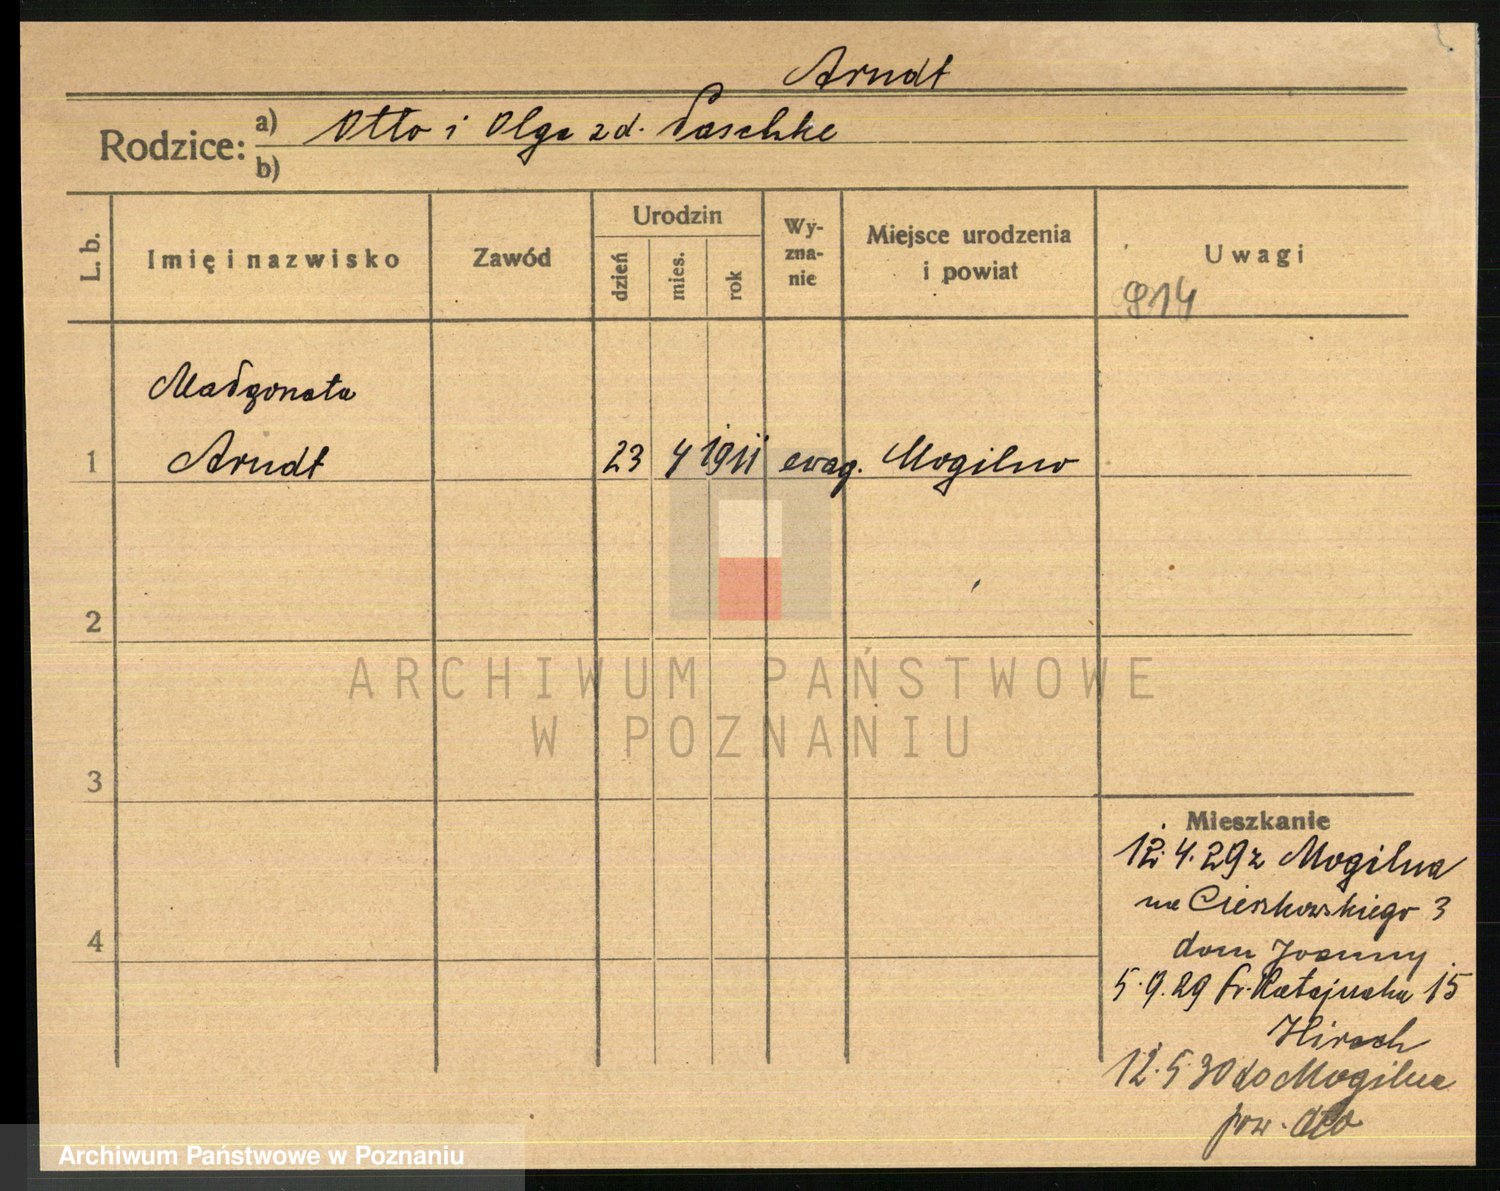 Arndt
Rodzice: a) Otto i Olga zd. Paschke
b)
L. b.
Imię i nazwisko
Zawód
Urodzin
dzień
mies.
rok
Wy-
zna-
nie
Miejsce urodzenia
i powiat
Uwagi
914
Małgorzata
1 Arndt 23 4 1911 ewag. Mogilno
2
ARCHIWUM PAŃSTWOWE
W POZNANIU
3
Mieszkanie
12.4.29 z Mogilna
na Cieszkowskiego 3
4
dom Joanny
5.9.29 Fr. Ratajczaka 15
Hirsch
12.5.30 do Mogilna
pow. dto
Archiwum Państwowe w Poznaniu